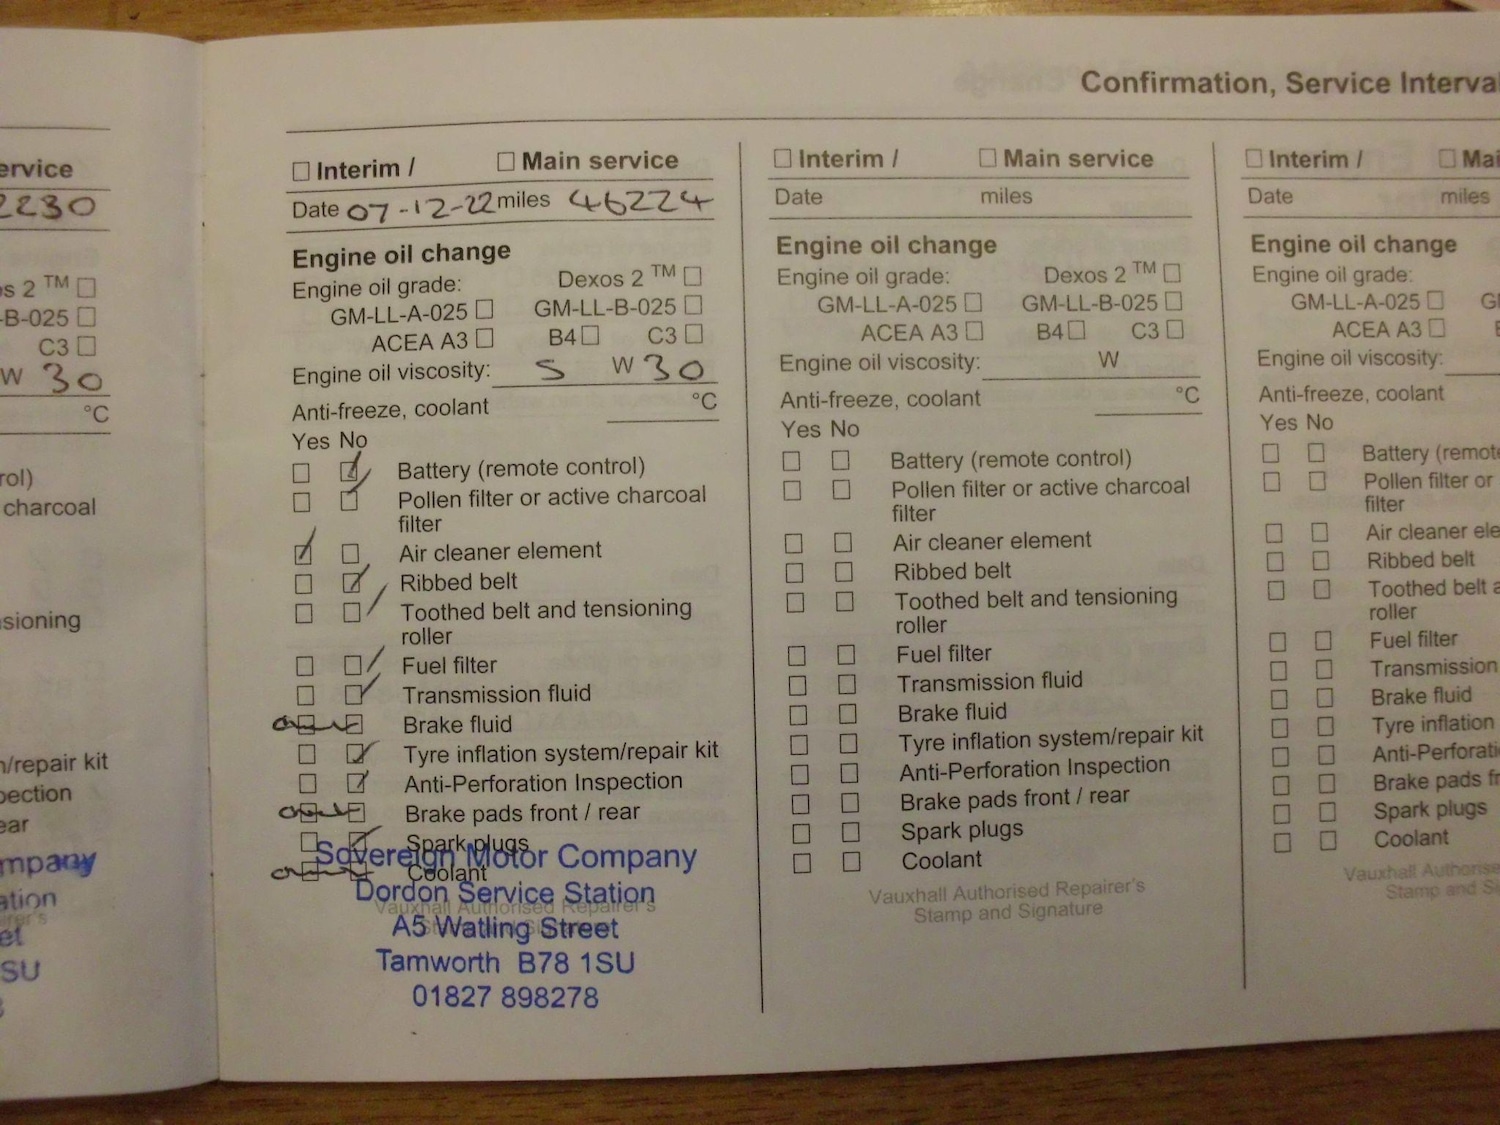 Confirmation, Service Interval
ervice
2230
os 2 ™
-B-025
C3
W 30
°C
rol)
charcoal
nsioning
n/repair kit
pection
ear
mpany
ation
irer's
et
SU
Interim / Main service
Date 07-12-22 miles 46224
Engine oil change
Engine oil grade: Dexos 2 ™
GM-LL-A-025 GM-LL-B-025
ACEA A3 B4 C3
Engine oil viscosity: 5 W 30
Anti-freeze, coolant °C
Yes No
Battery (remote control)
Pollen filter or active charcoal
filter
Air cleaner element
Ribbed belt
Toothed belt and tensioning
roller
Fuel filter
Transmission fluid
Brake fluid
Tyre inflation system/repair kit
Anti-Perforation Inspection
Brake pads front / rear
Spark plugs
Coolant
Vauxhall Authorised Repairer's
Stamp and Signature
Sovereign Motor Company
Dordon Service Station
A5 Watling Street
Tamworth B78 1SU
01827 898278
Interim / Main service
Date miles
Engine oil change
Engine oil grade: Dexos 2 ™
GM-LL-A-025 GM-LL-B-025
ACEA A3 B4 C3
Engine oil viscosity: W
Anti-freeze, coolant °C
Yes No
Battery (remote control)
Pollen filter or active charcoal
filter
Air cleaner element
Ribbed belt
Toothed belt and tensioning
roller
Fuel filter
Transmission fluid
Brake fluid
Tyre inflation system/repair kit
Anti-Perforation Inspection
Brake pads front / rear
Spark plugs
Coolant
Vauxhall Authorised Repairer's
Stamp and Signature
Interim / Mai
Date miles
Engine oil change
Engine oil grade:
GM-LL-A-025 G
ACEA A3
Engine oil viscosity:
Anti-freeze, coolant
Yes No
Battery (remote
Pollen filter or
filter
Air cleaner ele
Ribbed belt
Toothed belt a
roller
Fuel filter
Transmission
Brake fluid
Tyre inflation
Anti-Perforati
Brake pads fr
Spark plugs
Coolant
Vauxhall Authorise
Stamp and Si